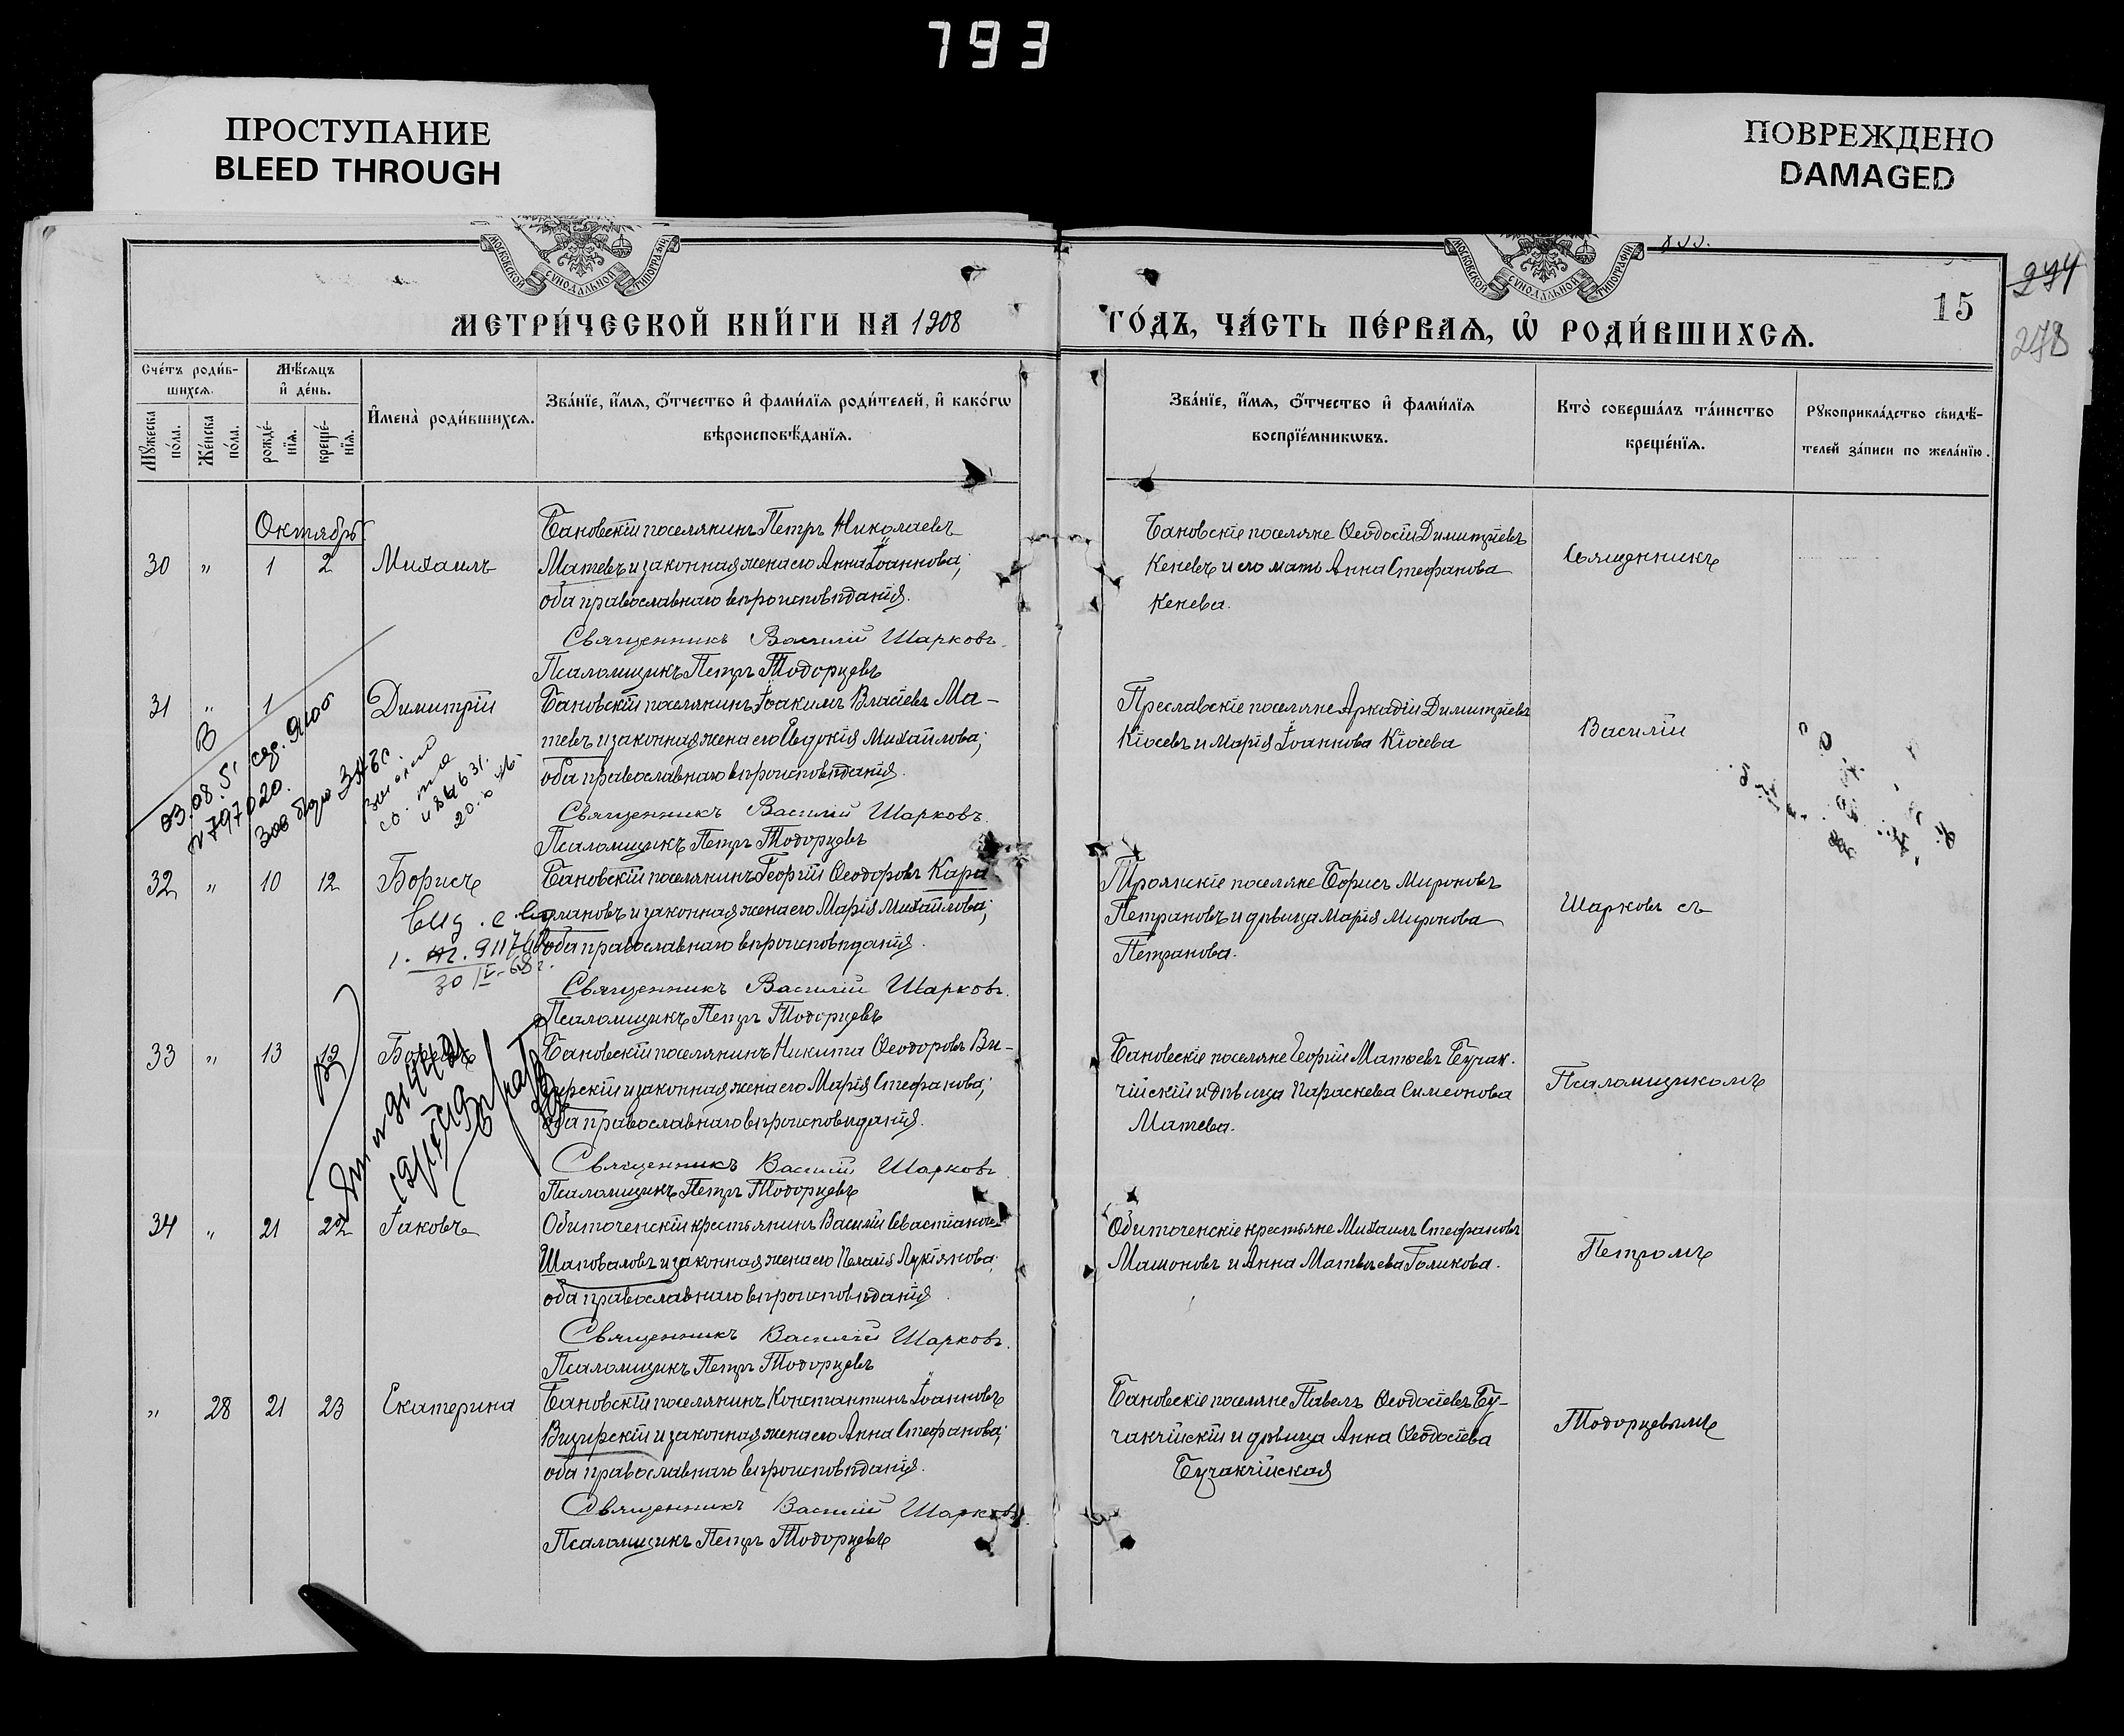 793
ПРОСТУПАНИЕ
BLEED THROUGH
ПОВРЕЖДЕНО
DAMAGED
МОСКОВСКОЙ СѴНОДАЛЬНОЙ ТИПОГРАФІИ
МОСКОВСКОЙ СѴНОДАЛЬНОЙ ТИПОГРАФІИ
274
278
15
МЕТРИ́ЧЕСКОЙ КНИ́ГИ НА 1908
ГО́ДЪ, ЧА́СТЬ ПЕ́РВАѦ, Ѽ РОДИ́ВШИХСѦ.
Сче́тъ роди́в-
шихсѧ.
Мꙋ́жеска по́ла.
Же́нска по́ла.
Мѣ́сѧцъ
и҆ де́нь.
рожде́-
нїѧ.
креще́-
нїѧ.
И҆мена̀ роди́вшихсѧ.
Зва́нїе, и҆́мѧ, ѻ҆́тчество и҆ фами́лїѧ роди́телей, и҆ како́гѡ
вѣроисповѣ́данїѧ.
Зва́нїе, и҆́мѧ, ѻ҆́тчество и҆ фами́лїѧ
воспрїе́мникѡвъ.
Кто̀ соверша́лъ та́инство
креще́нїѧ.
Рꙋкоприкла́дство свидѣ́-
телей за́писи по жела́нїю.
Октябрь
30 " 1 2 Михаилъ
Бановскій поселянинъ Петръ Николаевъ
Матевъ и законная жена его Анна Іоаннова;
оба православнаго вѣроисповѣданія.
Священникъ Василій Шарковъ.
Псаломщикъ Петръ Тодорцевъ
Бановскіе поселяне Ѳеодосій Димитріевъ
Кеневъ и его мать Анна Стефанова
Кенева.
Священникъ
31 " 1 Димитрій
Бановскій поселянинъ Іоакимъ Власіевъ Ма-
тевъ и законная жена его Евдокія Михайлова;
оба православнаго вѣроисповѣданія.
Священникъ Василій Шарковъ.
Псаломщикъ Петръ Тодорцевъ
Преславскіе поселяне Аркадій Димитріевъ
Кіосевъ и Марія Іоаннова Кіосева
Василій
32 " 10 12 Борисъ
Бановскій поселянинъ Георгій Ѳеодоровъ Кара-
мановъ и законная жена его Марія Михайлова;
оба православнаго вѣроисповѣданія.
Священникъ Василій Шарковъ.
Псаломщикъ Петръ Тодорцевъ
Троянскіе поселяне Борисъ Мироновъ
Петрановъ и дѣвица Марія Миронова
Петранова.
Шарковъ съ
33 " 13 19 Борисъ
Бановскій поселянинъ Никита Ѳеодоровъ Ви-
зирскій и законная жена его Марія Стефанова;
оба православнаго вѣроисповѣданія.
Священникъ Василій Шарковъ
Псаломщикъ Петръ Тодорцевъ
Бановскіе поселяне Георгій Матѳеевъ Бучак-
чійскій и дѣвица Параскева Симеонова
Матева.
Псаломщикомъ
34 " 21 22 Іаковъ
Обиточенскій крестьянинъ Василій Севастіановъ
Шаповаловъ и законная жена его Пелагія Лукіянова;
оба православнаго вѣроисповѣданія.
Священникъ Василій Шарковъ.
Псаломщикъ Петръ Тодорцевъ
Обиточенскіе крестьяне Михаилъ Стефановъ
Мамоновъ и Анна Матвѣева Голикова.
Петромъ
" 28 21 23 Екатерина
Бановскій поселянинъ Константинъ Іоанновъ
Визирскій и законная жена его Анна Стефанова;
оба православнаго вѣроисповѣданія.
Священникъ Василій Шарковъ.
Псаломщикъ Петръ Тодорцевъ
Бановскіе поселяне Павелъ Ѳеодосіевъ Бу-
чакчійскій и дѣвица Анна Ѳеодосіева
Бучакчійская
Тодорцевымъ